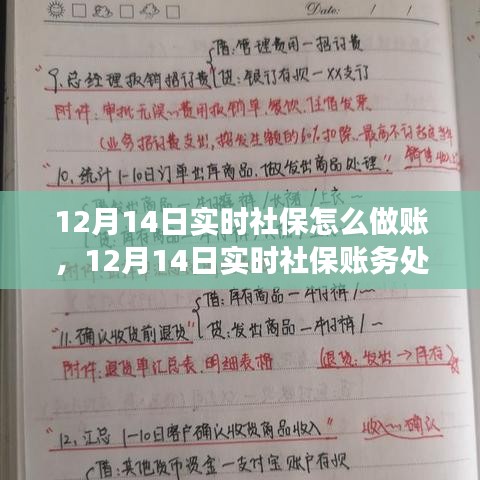 DATE / /
借:管理费用一招讨费
9.总经理报销招讨费 贷:银行存款一XX支行
附件:审批无误的费用报销单、餐饮、住宿发票
(业务招讨费支出,按发生额的60%扣除,最高不讨超过当年
销售收入
10.统计1-10日订单出库商品,做发出商品处理
12月14日实时社保怎么做账
,12月14日实时社保账务处
借:库存商品一牛仔裤/一
11.确认收货前退货 贷:发出商品一牛仔裤/一
附件:退货单汇总表、明细表格 (退货:发出→库存)
12.汇总1-10日客户确认收货商品收入 收入→确认
借:其他货币资金一支付宝账户存款